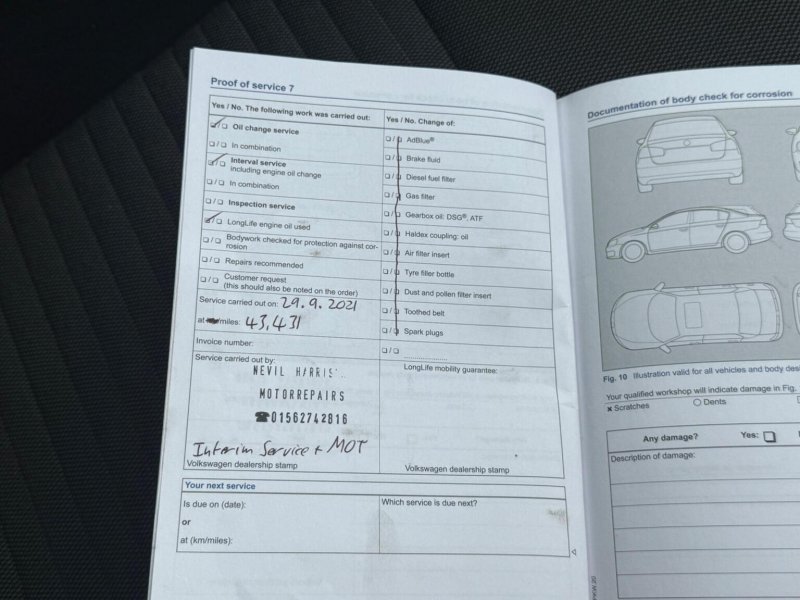 Proof of service 7
Yes / No. The following work was carried out:
Oil change service
In combination
Interval service
including engine oil change
In combination
Inspection service
LongLife engine oil used
Bodywork checked for protection against cor-
rosion
Repairs recommended
Customer request
(this should also be noted on the order)
Service carried out on: 29.9.2021
at /miles: 43,431
Invoice number:
Service carried out by:
NEVIL HARRIS
MOTORREPAIRS
☎01562742816
Interim Service + MOT
Volkswagen dealership stamp
Yes / No. Change of:
AdBlue®
Brake fluid
Diesel fuel filter
Gas filter
Gearbox oil: DSG®, ATF
Haldex coupling: oil
Air filter insert
Tyre filler bottle
Dust and pollen filter insert
Toothed belt
Spark plugs
LongLife mobility guarantee:
Volkswagen dealership stamp
Your next service
Is due on (date):
or
at (km/miles):
Which service is due next?
Documentation of body check for corrosion
Fig. 10 Illustration valid for all vehicles and body
Your qualified workshop will indicate damage in Fig.
× Scratches
Dents
Any damage? Yes:
Description of damage: